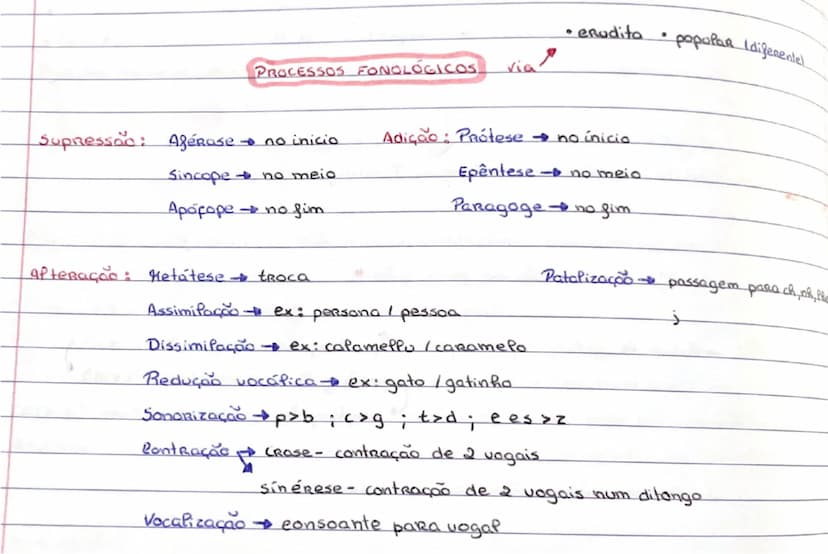 • erudita • popular (diferente)
PROCESSOS FONOLÓGICOS via
Supressão: Aférese → no inicio Adição: Prótese → no ínicio
Síncope → no meio Epêntese → no meio
Apócope → no fim Paragoge → no fim
Alteração: Metátese → troca Patalização → passagem para ch, nh, lh
j
Assimilação → ex: persona / pessoa
Dissimilação → ex: calamellu / caramelo
Redução vocálica → ex: gato / gatinho
Sonorização → p>b ; c>g ; t>d ; e es>z
Contração → crase - contração de 2 vogais
sinérese - contração de 2 vogais num ditongo
Vocalização → consoante para vogal